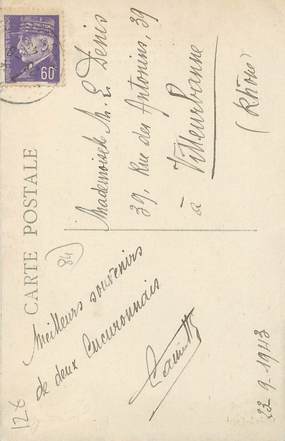 60c
CARTE POSTALE
Mademoiselle M. L. Denis
39, Rue des Antonins, 39
à Villeurbanne
(Rhône)
84
Meilleurs souvenirs
de deux Cucuronnais
23-9-1943